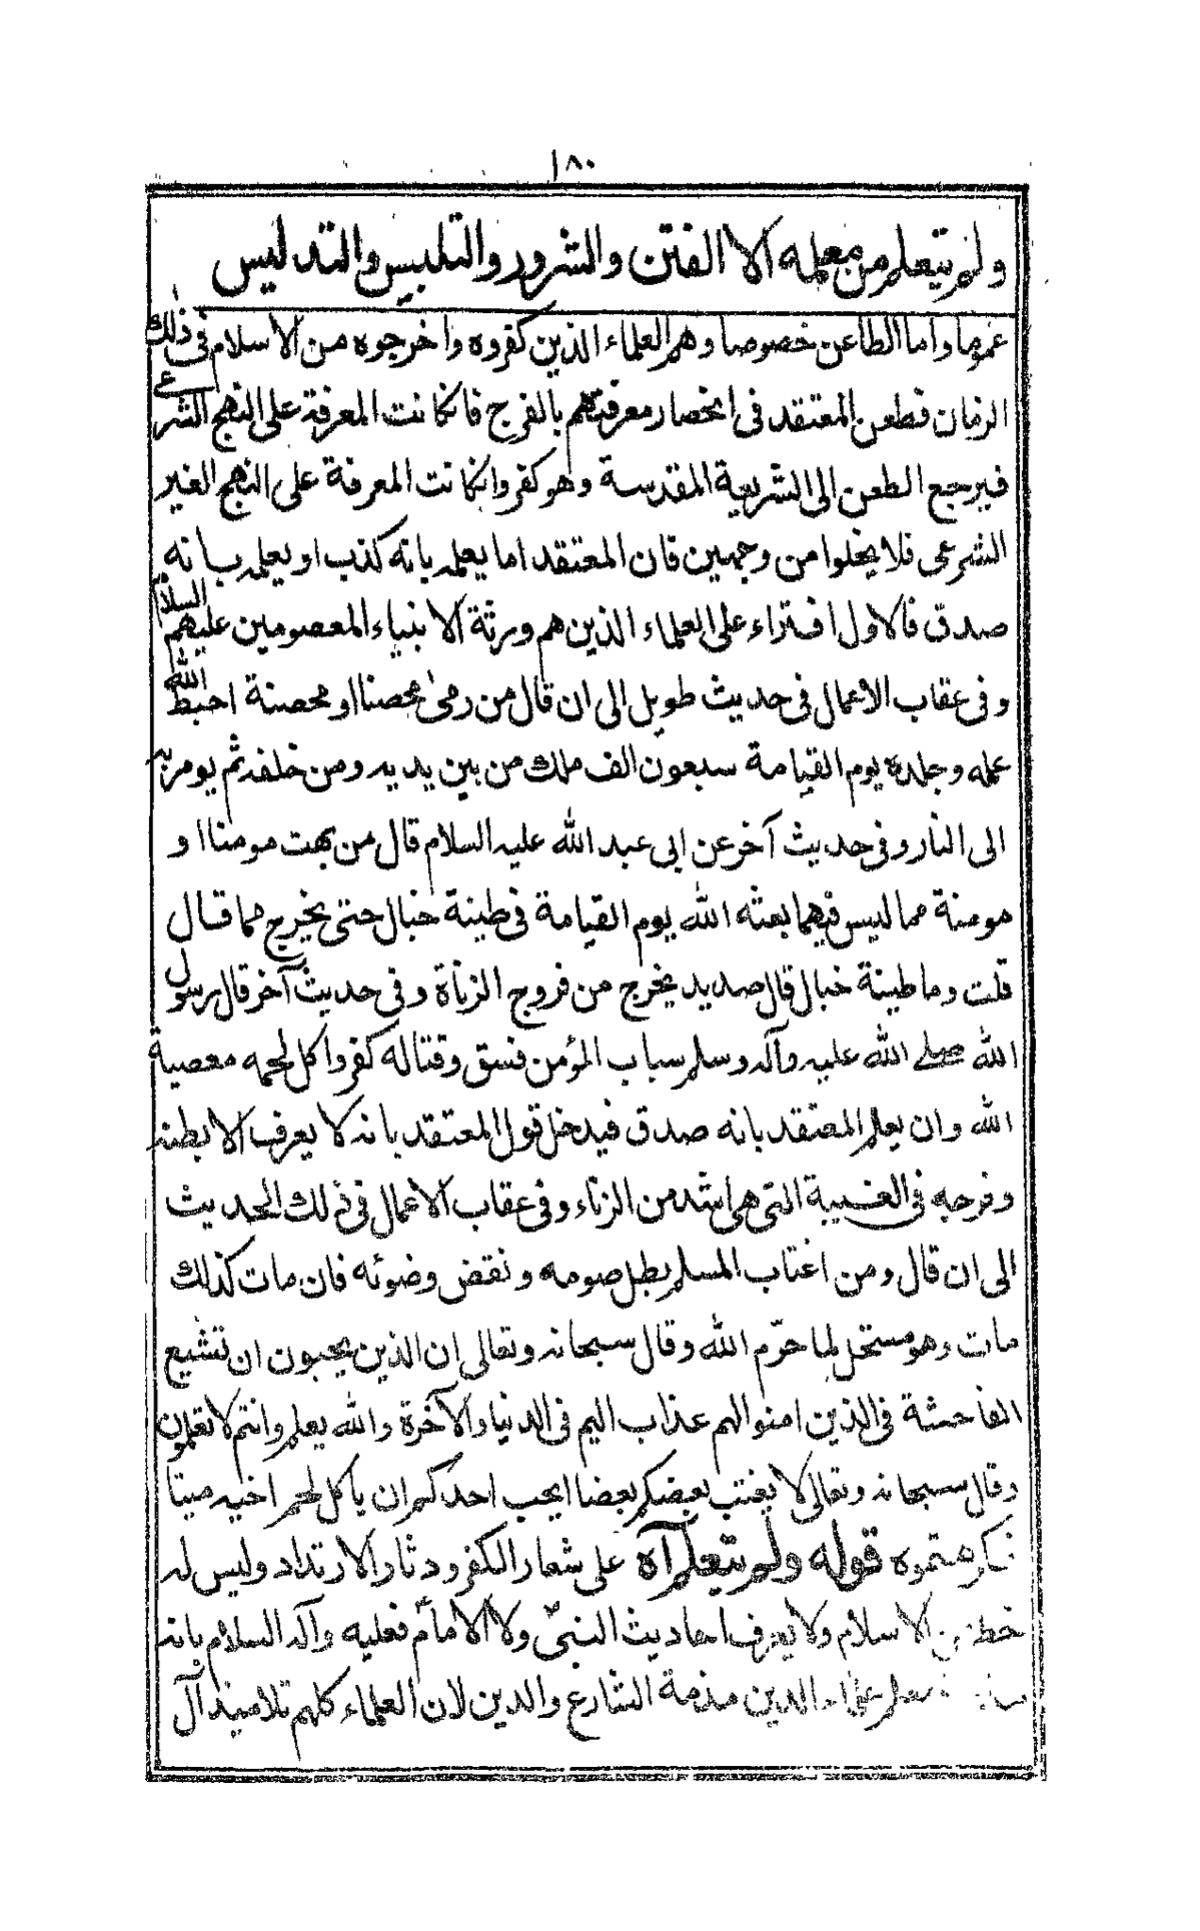 ١٨٠
ولم يتعلم من معلمه الا الفتن والشرور والتلبيس والتدليس
عموما واما الطاعن خصوصا وهم العلماء الذين كفروه واخرجوه من الاسلام فى ذلك
الزمان فطعن المعتقد فى انحصار معرفتهم بالفرج فانكانت المعرفة على النهج الشرعى
فيرجع الطعن الى الشريعة المقدسة وهو كفر وانكانت المعرفة على النهج الغير
الشرعى فلا يخلوا من وجهين فان المعتقد اما يعلم بانه كذب او يعلم بانه
صدق فالاول افتراء على العلماء الذين هم ورثة الانبياء المعصومين عليهم السلام
وفى عقاب الاعمال فى حديث طويل الى ان قال من رمى محصنا او محصنة احبط الله
عمله وجلده يوم القيامة سبعون الف ملك من بين يديه ومن خلفه ثم يومر به
الى النار وفى حديث آخر عن ابى عبد الله عليه السلام قال من بهت مومنا او
مومنة مما ليس فيهما بعثه الله يوم القيامة فى طينة خبال حتى يخرج مما قال
قلت وما طينة خبال قال صديد يخرج من فروج الزناة وفى حديث آخر قال رسول
الله صلى الله عليه وآله وسلم سباب المؤمن فسق وقتاله كفر واكل لحمه معصية
الله وان يعلم المعتقد بانه صدق فيدخل قول المعتقد بانه لا يعرف الا بطنه
وفرجه فى الغيبة التى هى اشد من الزناء وفى عقاب الاعمال فى ذلك الحديث
الى ان قال ومن اغتاب المسلم بطل صومه ونقض وضوئه فان مات كذلك
مات وهو مستحل لما حرّم الله وقال سبحانه وتعالى ان الذين يحبون ان تشيع
الفاحشة فى الذين امنوا لهم عذاب اليم فى الدنيا والآخرة والله يعلم وانتم لا تعلمون
وقال سبحانه وتعالى لا يغتب بعضكم بعضا ايحب احدكم ان ياكل لحم اخيه ميتا
فكرهتموه قوله ولم يتعلم آه على شعار الكفر ودثار الارتداد وليس له
الاسلام ولا يعرف احاديث النبىّ ولا الامام فعليه وآله السلام بانه
علماء الدين مذمة الشارع والدين لان العلماء كلهم تلاميذ آل